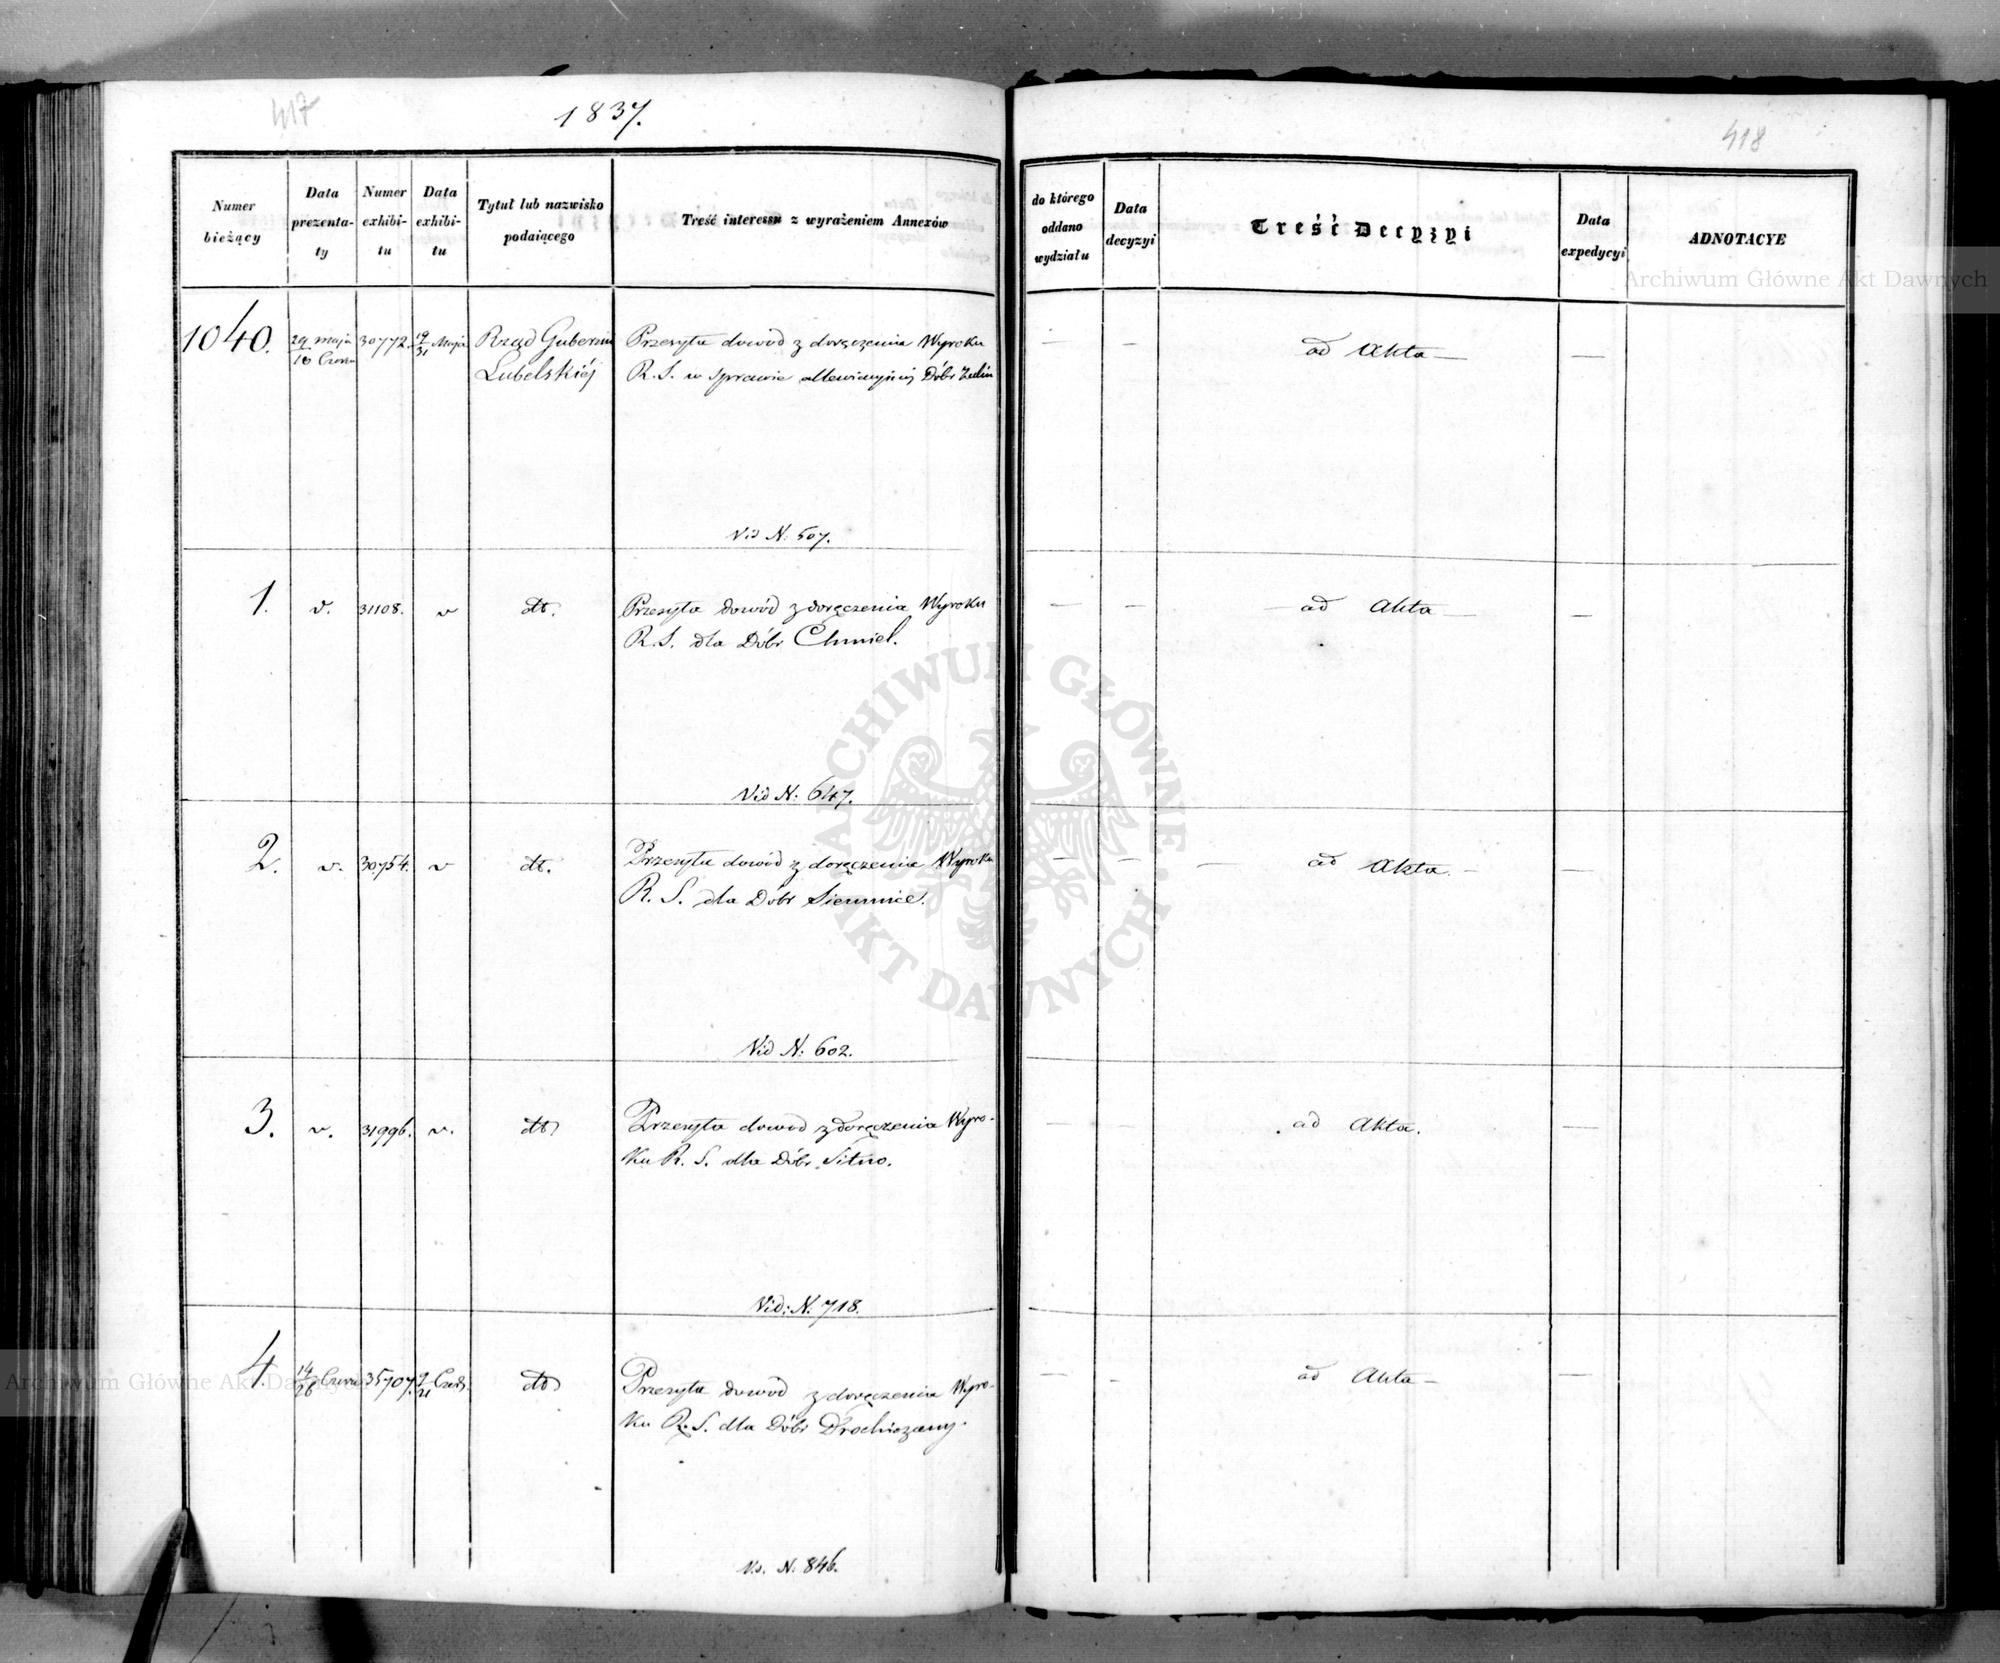 417
1837.
418
Numer
bieżący
Data
prezenta-
ty
Numer
exhibi-
tu
Data
exhibi-
tu
Tytuł lub nazwisko
podaiącego
Treść interessu z wyrażeniem Annexów
do którego
oddano
wydziału
Data
decyzyi
Treść Decyzyi
Data
expedycyi
ADNOTACYE
1040.
29 maja
10 Czerw
30772.
19/31 Maja
Rząd Gubernii
Lubelskiéj
Przesyła dowod z doręczenia Wyroku
R. S. w sprawie Dóbr Zulin
Vid N: 507.
— — ad Akta — —
1. v. 31108. v dt.
Przesyła dowód z doręczenia Wyroku
R. S. dla Dóbr Chmiel.
Vid N: 647.
— — — ad Akta — —
2. v. 30754. v dt.
Przesyła dowód z doręczenia Wyroku
R. S. dla Dóbr Siennice.
Vid N: 602.
— — — ad Akta. — —
3. v. 31996. v. dto
Przesyła dowod z doręczenia Wyro-
ku R. S. dla Dóbr Sitno.
Vid: N. 718.
— — ad Akta. —
4. 14/26 Czerw 35707. 9/21 Czerw. dto
Przesyła dowód z doręczenia Wyro-
ku R. S. dla Dóbr Drochiczany.
Vid. N. 846.
— — ad Akta — —
ARCHIWUM GŁÓWNE AKT DAWNYCH
Archiwum Główne Akt Dawnych
Archiwum Główne Akt Dawnych